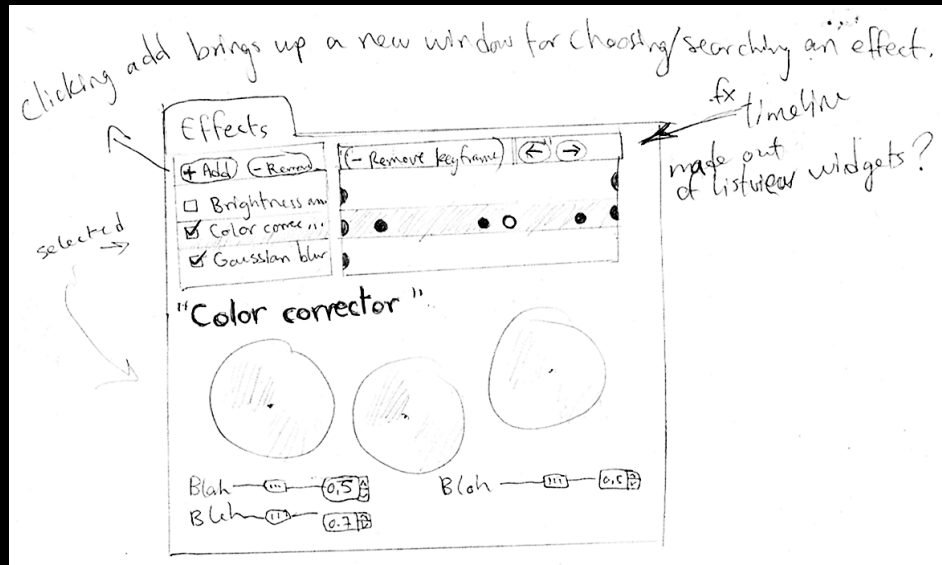 clicking add brings up a new window for choosing/searching an effect.
fx timeline
made out
of listview widgets?
Effects
+ Add - Remov
- Remove keyframe ← →
Brightness an
Color corre...
selected
Gaussian blur
"Color corrector"
Blah 0,5
Blah 0,5
Bleh 0.7